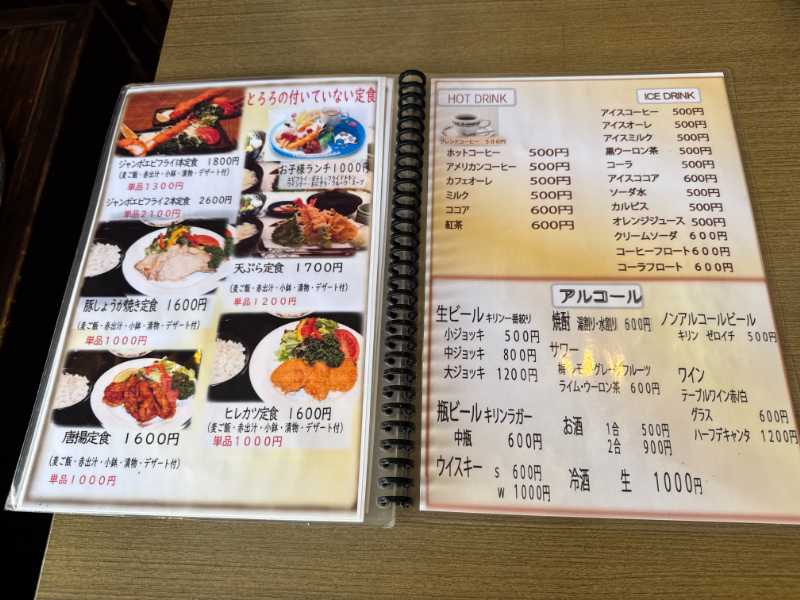 とろろの付いていない定食
ジャンボエビフライ1本定食 1800円
(麦ご飯・赤出汁・小鉢・漬物・デザート付)
単品1300円
ジャンボエビフライ2本定食 2600円
単品2100円
お子様ランチ1000円
エビフライ・ポテト・フライドチキン
ウインナー・おにぎり・フルーツ・スープ
天ぷら定食 1700円
(麦ご飯・赤出汁・小鉢・漬物・デザート付)
単品1200円
豚しょうが焼き定食 1600円
(麦ご飯・赤出汁・小鉢・漬物・デザート付)
単品1000円
ヒレカツ定食 1600円
(麦ご飯・赤出汁・小鉢・漬物・デザート付)
単品1000円
唐揚定食 1600円
(麦ご飯・赤出汁・小鉢・漬物・デザート付)
単品1000円
HOT DRINK
ブレンドコーヒー 500円
ホットコーヒー 500円
アメリカンコーヒー 500円
カフェオーレ 500円
ミルク 500円
ココア 600円
紅茶 600円
ICE DRINK
アイスコーヒー 500円
アイスオーレ 500円
アイスミルク 500円
黒ウーロン茶 500円
コーラ 500円
アイスココア 600円
ソーダ水 500円
カルピス 500円
オレンジジュース 500円
クリームソーダ 600円
コーヒーフロート 600円
コーラフロート 600円
アルコール
生ビール キリン一番絞り
小ジョッキ 500円
中ジョッキ 800円
大ジョッキ 1200円
瓶ビール キリンラガー
中瓶 600円
ウイスキー S 600円
W 1000円
焼酎 湯割り・水割り 600円
サワー
梅・レモン・グレープフルーツ
ライム・ウーロン茶 600円
お酒 1合 500円
2合 900円
冷酒 生 1000円
ノンアルコールビール
キリン ゼロイチ 500円
ワイン
テーブルワイン赤/白
グラス 600円
ハーフデキャンタ 1200円